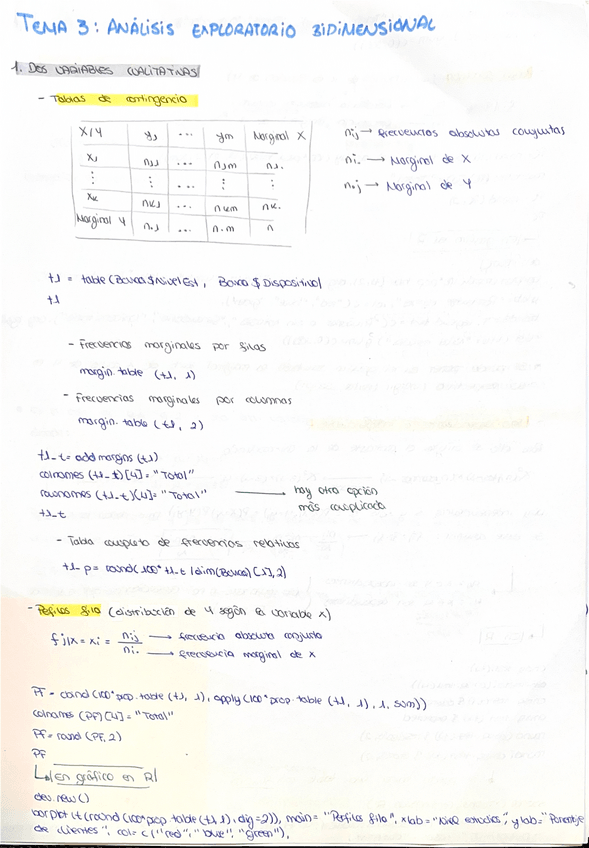 TEMA 3: ANÁLISIS EXPLORATORIO BIDIMENSIONAL
1. DOS VARIABLES CUALITATIVAS
- Tablas de contingencia
X/Y y1 ... ym Marginal X
x1 n11 ... n1m n1.
⋮ ⋮ ... ⋮ ⋮
xk nk1 ... nkm nk.
Marginal Y n.1 ... n.m n
nij → frecuencias absolutas conjuntas
ni. → Marginal de X
n.j → Marginal de Y
t1 = table (Banca$NivelEst, Banca$Dispositivo)
t1
- Frecuencias marginales por filas
margin.table (t1, 1)
- Frecuencias marginales por columnas
margin.table (t1, 2)
t1_t = addmargins (t1)
colnames (t1_t)[4] = "Total"
rownames (t1_t)[4] = "Total" → hay otra opción
más complicada
t1_t
- Tabla completa de frecuencias relativas
t1_p = round(100* t1_t / dim(Banca)[1], 2)
- Perfiles fila (distribución de Y según la variable X)
fj|x = xi = nij / ni. → frecuencia absoluta conjunta
→ frecuencia marginal de X
PF = cbind (100*prop.table (t1, 1), apply(100*prop.table (t1, 1), 1, sum))
colnames (PF)[4] = "Total"
PF = round (PF, 2)
PF
↳ En gráfico en R
dev.new()
barplot (t(round(100*prop.table(t1,1), dig=2)), main= "Perfiles fila", xlab= "Nivel estudios", ylab= "Porcentaje
de clientes", col= c("red", "blue", "green"),